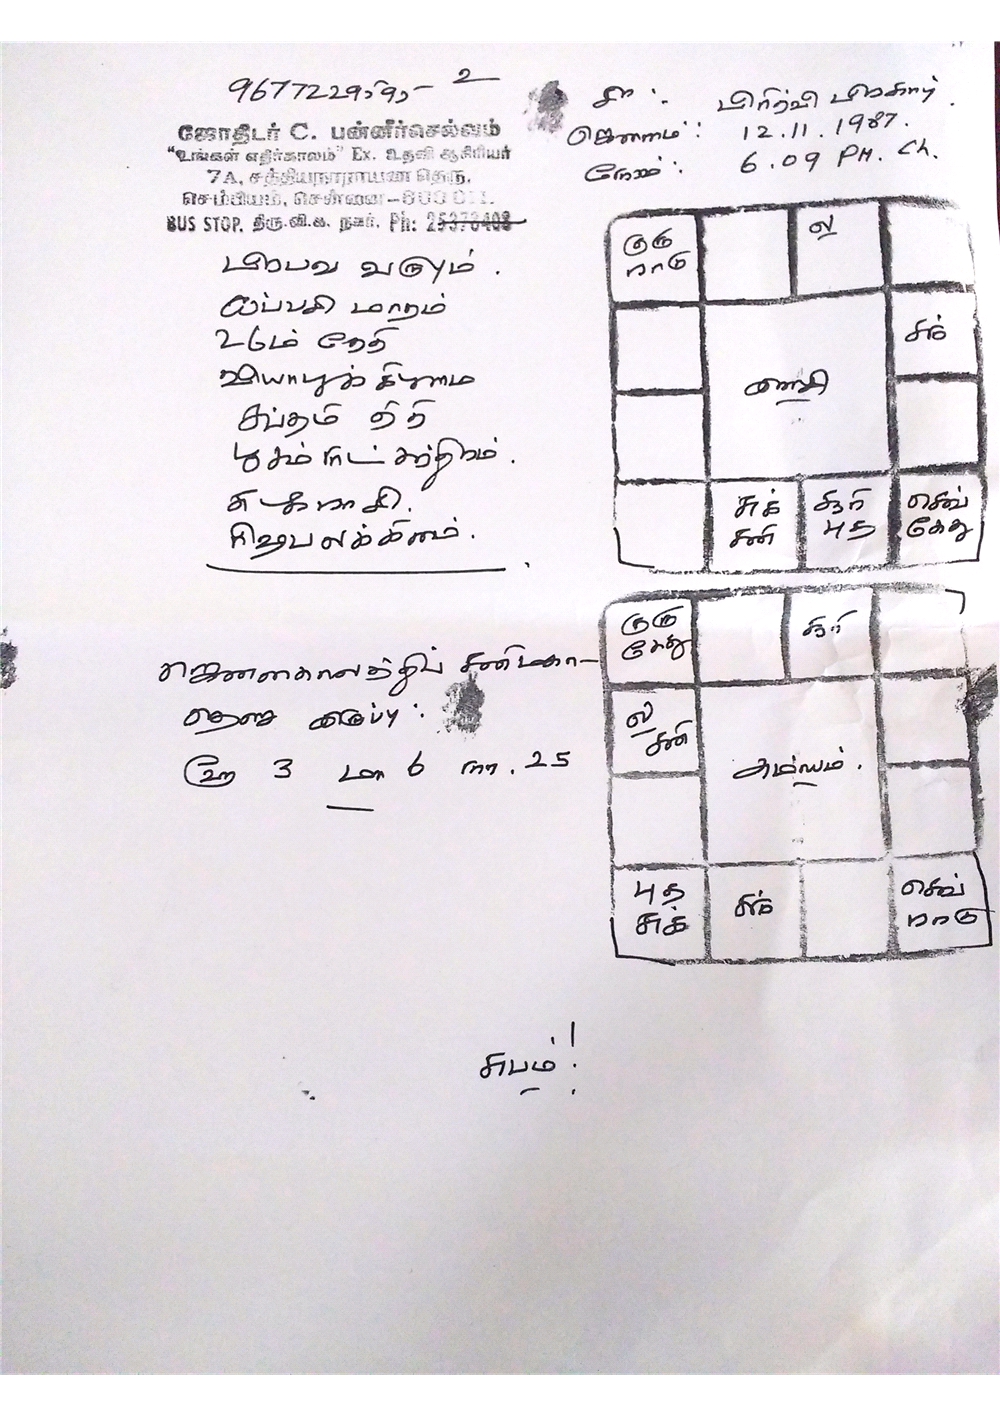 சி.
ஜனனம்: 12.11.1987.
நேரம்: 6.09 PM. Ch.
ஜோதிடர் C. பன்னீர்செல்வம்
"உங்கள் எதிர்காலம்" Ex. உதவி ஆசிரியர்
7A, சத்தியநாராயண தெரு,
செம்பியம், சென்னை-600 011.
BUS STOP. திரு.வி.க. நகர். Ph: 25373408
பிரபவ வருஷம்.
ஐப்பசி மாதம்
26ம் தேதி
வியாழக்கிழமை
சப்தமி திதி
பூசம் நட்சத்திரம்.
கடகராசி.
ரிஷபலக்கினம்.
குரு
ராகு
ல
சந்
ராசி
சுக்
சனி
சூரி
புத
செவ்
கேது
ஜனனகாலத்தில் சனிமகா-
தெசை இருப்பு:
வரு 3 மா 6 நா. 25
குரு
கேது
சூரி
ல
சனி
அம்சம்.
புத
சுக்
சந்
செவ்
ராகு
சுபம்!